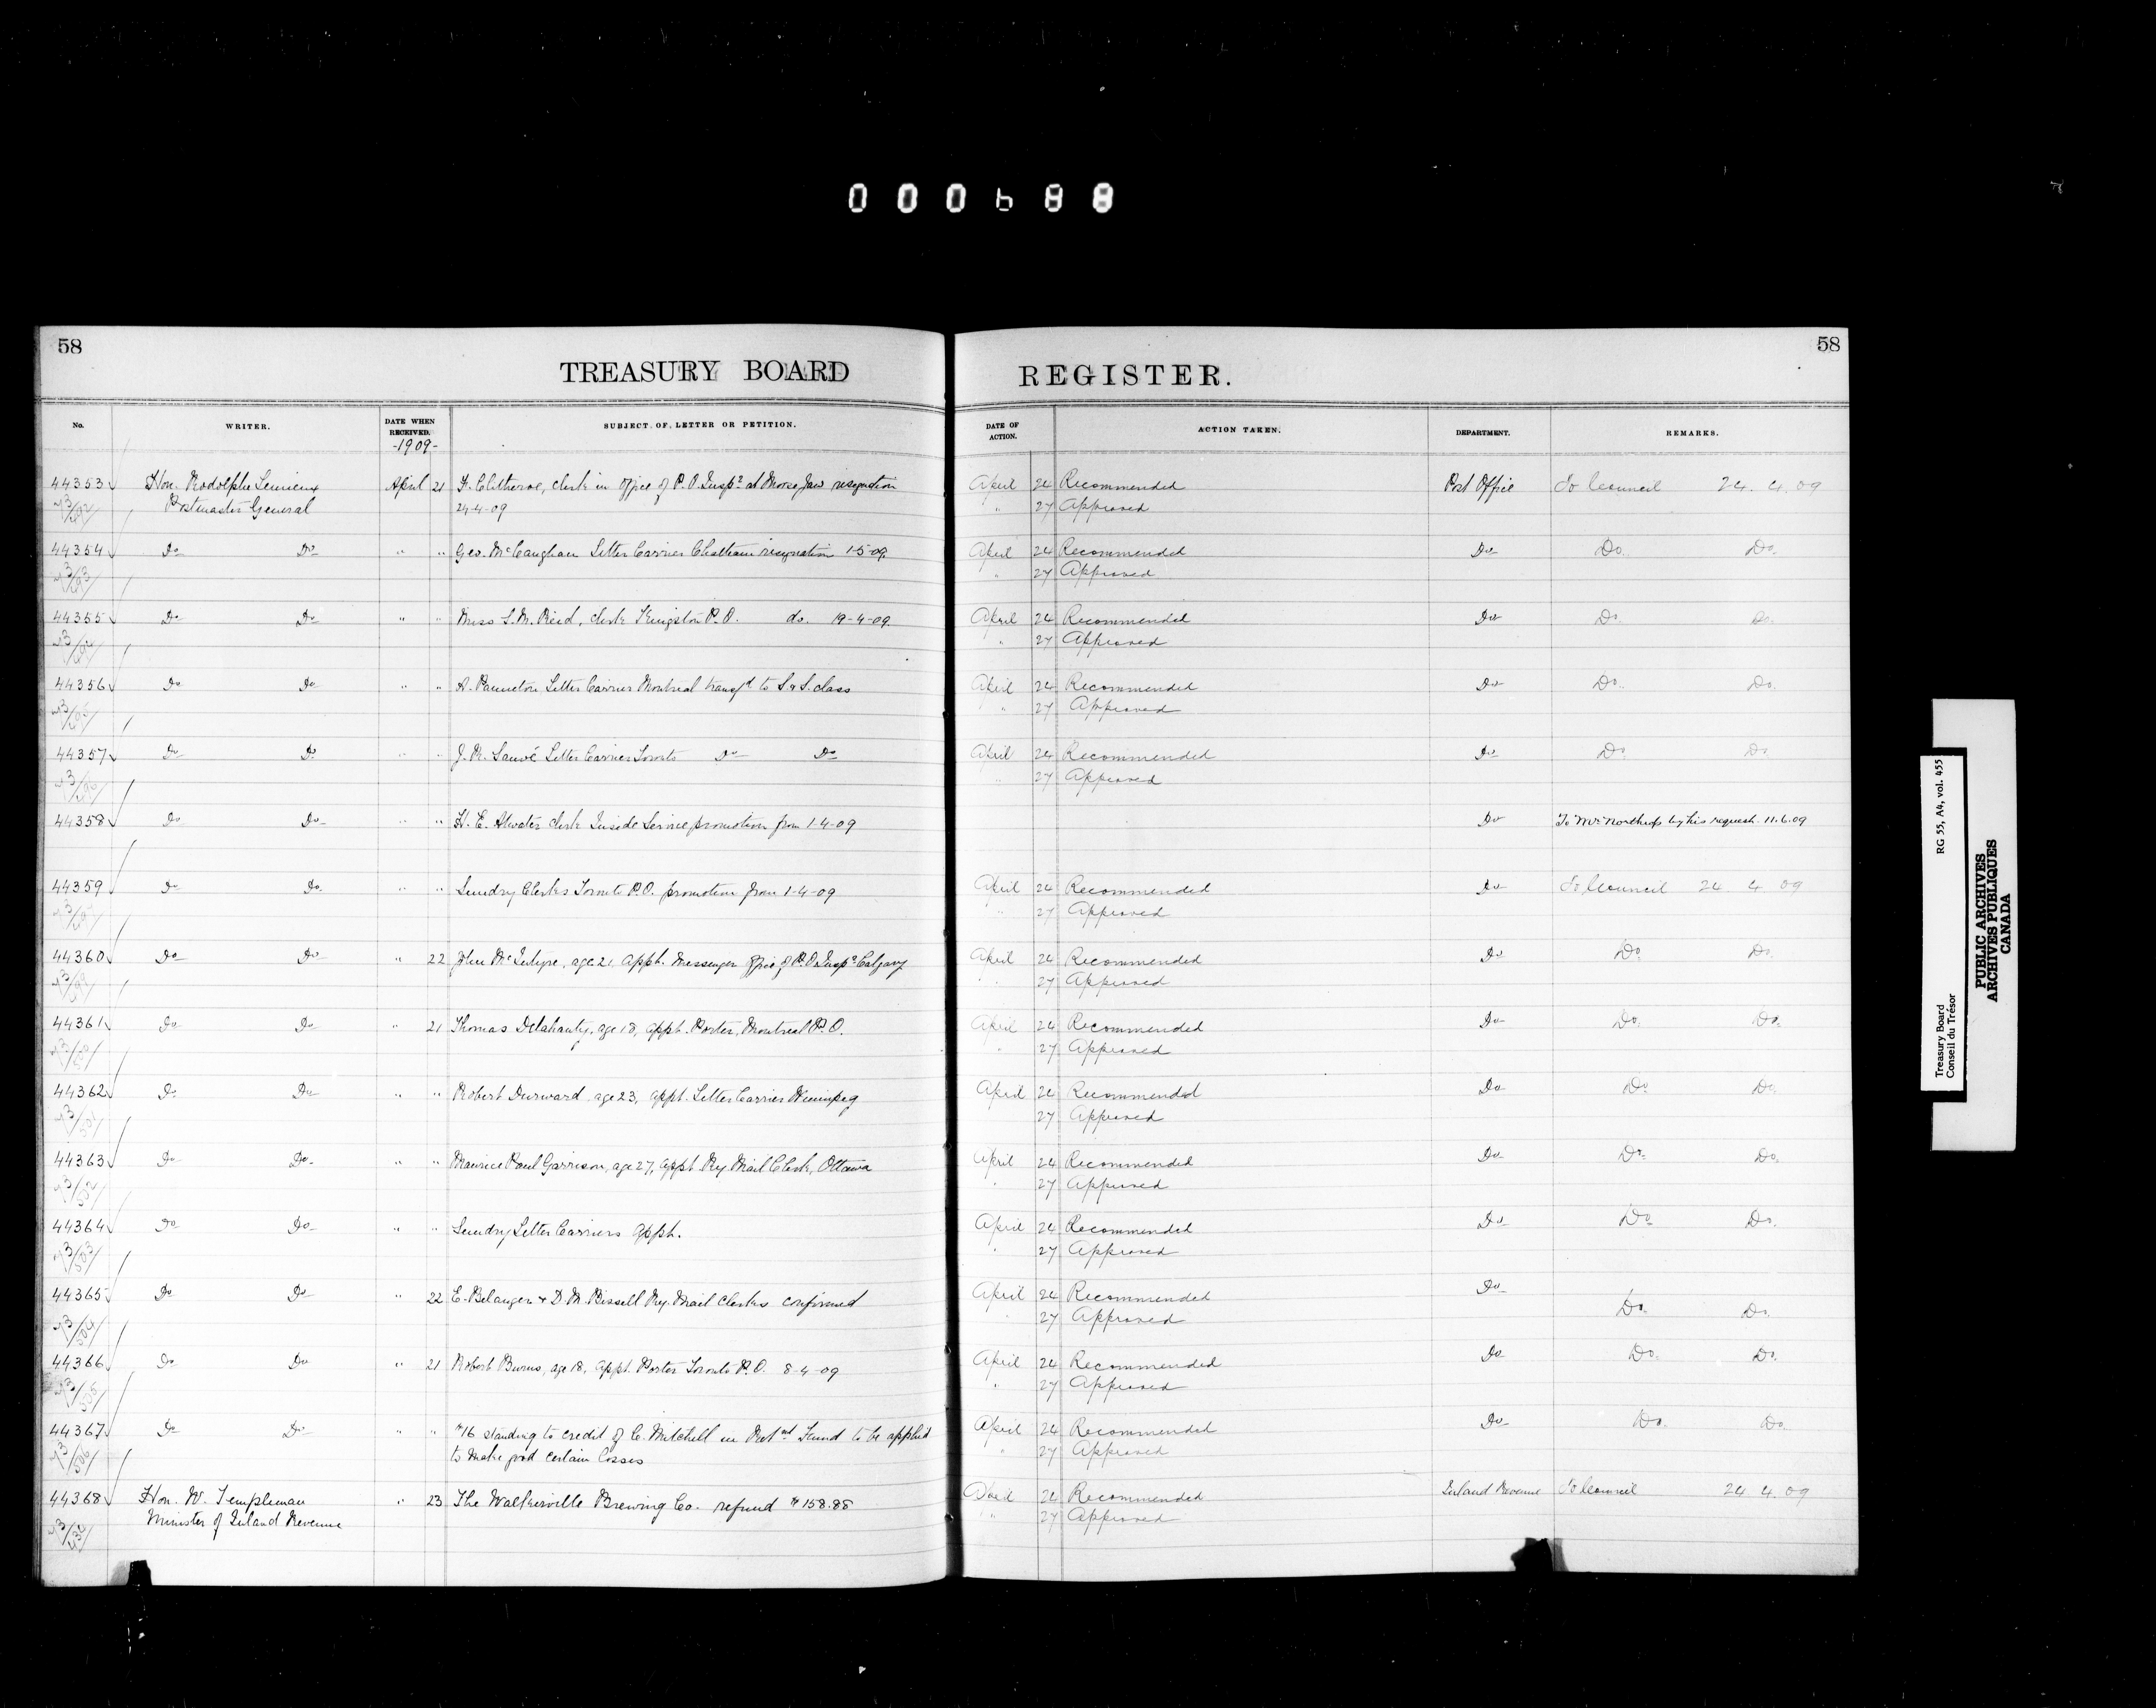 000688
58
58
TREASURY BOARD REGISTER.
No. WRITER. DATE WHEN RECEIVED. SUBJECT OF LETTER OR PETITION. DATE OF ACTION. ACTION TAKEN. DEPARTMENT. REMARKS.
-1909-
44353 Hon. Rodolphe Lemieux April 21 F. Clitheroe, clerk in office of P.O. Inspr at Moose Jaw resignation April 24 Recommended Post Office To Council 24.4.09
Postmaster General 24-4-09 " 27 Approved
44354 Do Do " " Geo. McCaughan Letter Carrier Chatham resignation 1-5-09 April 24 Recommended Do Do Do
" 27 Approved
44355 Do Do " " Miss L.M. Reid, clerk Kingston P.O. do. 19-4-09 April 24 Recommended Do Do Do
" 27 Approved
44356 Do Do " " A. Panneton Letter Carrier Montreal transfd to S.&S. class April 24 Recommended Do Do Do
" 27 Approved
44357 Do Do " " J.R. Sauvé Letter Carrier Toronto Do Do April 24 Recommended Do Do Do
" 27 Approved
44358 Do Do " " H.E. Atwater clerk Inside Service promotion from 1-4-09 Do To Mr Northrop by his request. 11.6.09
44359 Do Do " " Sundry Clerks Toronto P.O. promotion from 1-4-09 April 24 Recommended Do To Council 24 4 09
" 27 Approved
44360 Do Do " 22 John McIntyre, age 21 appt. Messenger office of P.O. Inspr Calgary April 24 Recommended Do Do Do
" 27 Approved
44361 Do Do " 21 Thomas Delahanty, age 18, appt. Porter, Montreal P.O. April 24 Recommended Do Do Do
" 27 Approved
44362 Do Do " " Robert Durward age 23, appt. Letter Carrier Winnipeg April 24 Recommended Do Do Do
27 Approved
44363 Do Do " " Maurice Paul Garrison, age 27, appt Ry. Mail Clerk, Ottawa April 24 Recommended Do Do Do
" 27 Approved
44364 Do Do " " Sundry Letter Carriers appt. April 24 Recommended Do Do Do
" 27 Approved
44365 Do Do " 22 E. Belanger & D.M. Bissell Ry. Mail Clerks confirmed April 24 Recommended Do
" 27 Approved Do Do
44366 Do Do " 21 Robert Burns, age 18, appt. Porter Toronto P.O. 8-4-09 April 24 Recommended Do Do Do
" 27 Approved
44367 Do Do " " $16 standing to credit of C. Mitchell in Retnt Fund to be applied April 24 Recommended Do Do Do
to make good certain losses " 27 Approved
44368 Hon. W. Templeman " 23 The Walkerville Brewing Co. refund $158.88 April 24 Recommended Inland Revenue To Council 24 4.09
Minister of Inland Revenue " 27 Approved
Treasury Board RG 55, A4, vol. 455
Conseil du Trésor
PUBLIC ARCHIVES
ARCHIVES PUBLIQUES
CANADA